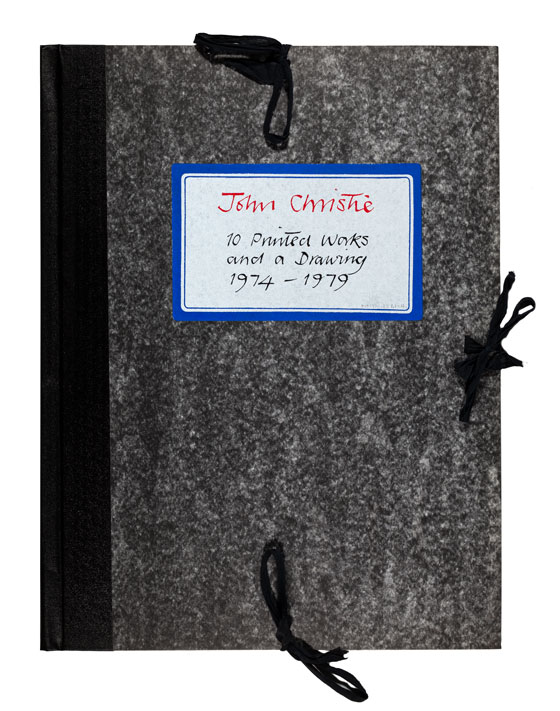 John Christie
10 Printed Works
and a Drawing
1974 – 1979